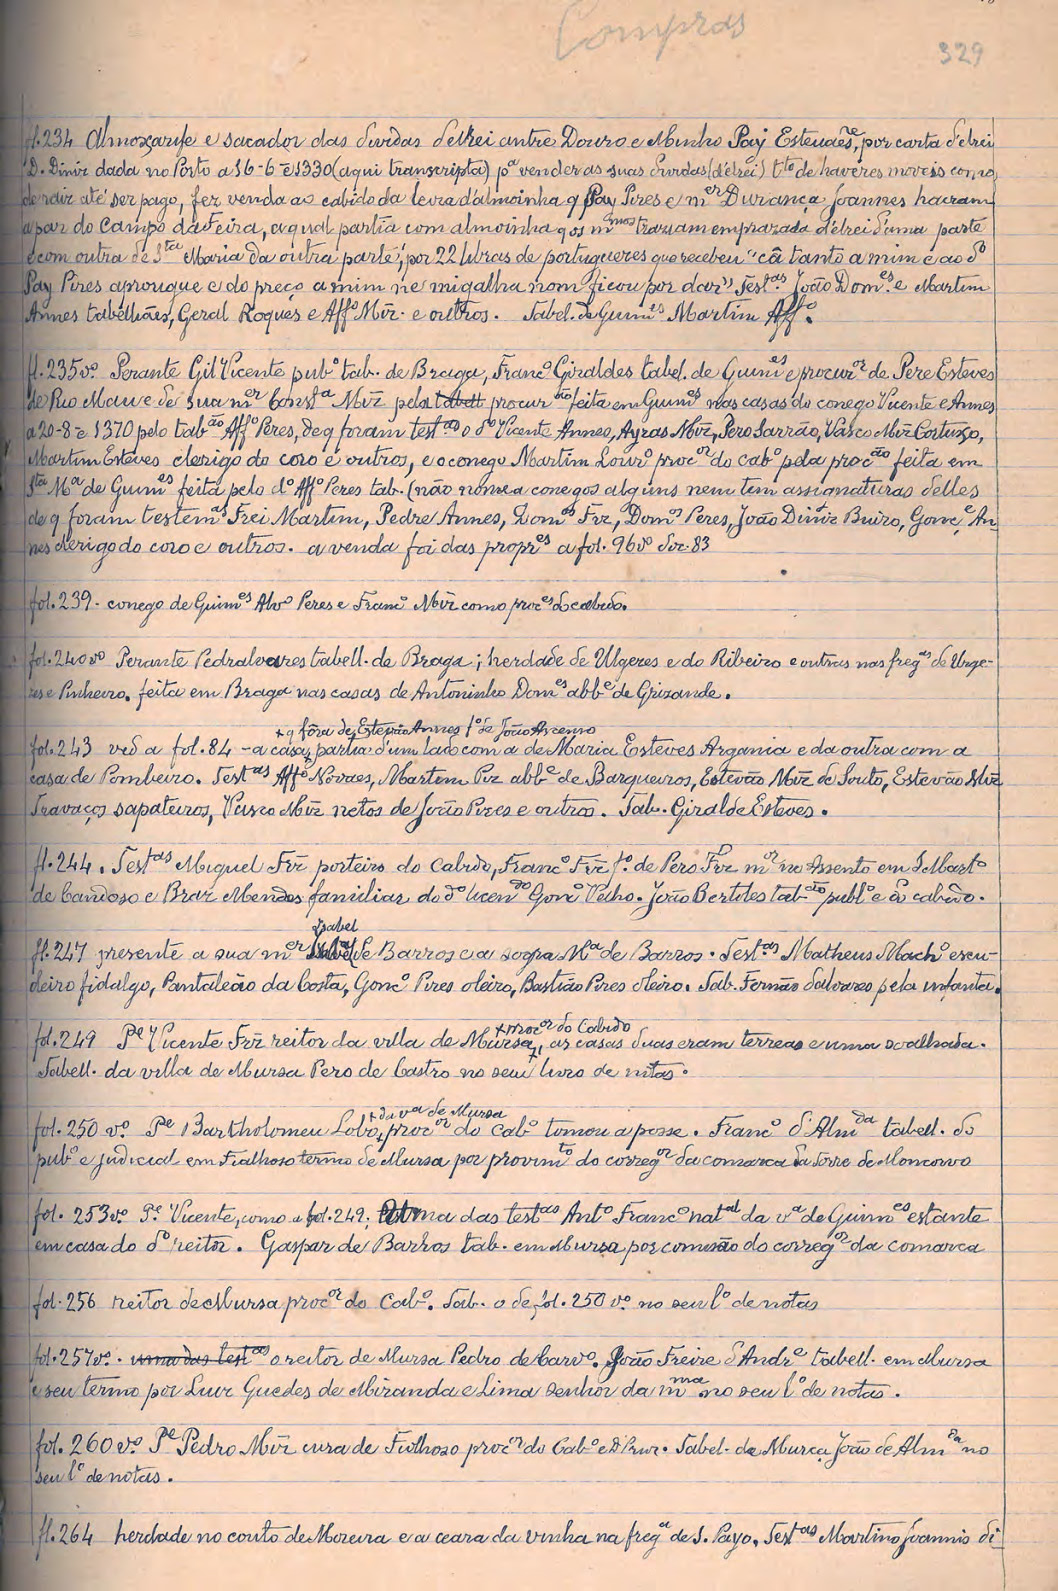 Compras
329
fl.234 Almoxarife e sacador das dividas delrei antre Douro e Minho Pay Estevaēs, por carta d'elrei
D. Diniz dada no Porto a 16-6-E1330 (aqui transcripta) pª vender as suas dividas (d'elrei) tto de haveres moveis como
de raiz até ser pago, fez venda ao cabido da leira d'almoinha q Pay Pires e mer Durança Joannes haviam
a par do Campo da Feira, a qual partia com almoinha q os mmos traziam emprazada d'elrei d'uma parte
e com outra de Sta Maria da outra parte; por 22 libras de portuguezes que recebeu "cā tanto a mim e ao dº
Pay Pires aprougue e do preço a mim ne migalha nom ficou por dar" Test.as João Dom.es e Martim
Annes tabelliães, Geral Roques e Affº Mīz. e outros. Tabel. de Guim.es Martim Affº.
fl.235vº. Perante Gil Vicente pubº tab. de Braga, Francº Giraldes tabel. de Guim.es e procur.or de Pere Esteves
de Rio Mau e de sua mer Const.ª Mīz pela tabell procur.ão feita em Guim.es nas casas do conego Vicente Annes
a 20-8-E 1370 pelo tab.ão Affº Peres, de q foram test.as o dº Vicente Annes, Ayras Mīz, Pero Sarrão, Vasco Mīz Cortuxo,
Martim Esteves clerigo do coro e outros, e o conego Martim Lour.º proc.or do cabº pela proc.ão feita em
Sta Mª de Guim.es feita pelo dº Affº Peres tab. (não nomea conegos alguns nem tem assignaturas delles
de q foram testem.as Frei Martim, Pedre Annes, Dom.os Frz, Dom.os Peres, João Diniz Buiro, Gonç.e An-
nes clerigo do coro e outros. a venda foi das propr.es a fol. 96vº doc. 83
fol. 239. conego de Guim.es Alvº Peres e Francº Mīz como proc.es do cabido.
fol. 240vº Perante Pedralvares tabell. de Braga; herdade de Ulgeses e do Ribeiro e outras nas freg.as de Urge-
ses e Pinheiro. feita em Braga nas casas de Antoninho Dom.es abb.e de Grizande.
+ q fôra de Estevão Annes fº de João Ascenso
fol. 243 ved a fol. 84 - a casa + partia d'um lado com a de Maria Esteves Argania e da outra com a
casa de Pombeiro. Test.as Affº Novaes, Martim Prz abb.e de Barqueiros, Estevão Mīz de Souto, Estevão Mīz
Travaços sapateiros, Vasco Mīz netos de João Pires e outros. Tab. Giralde Esteves.
fl. 244. Test.as Miguel Frz porteiro do Cabido, Francº Frz fº. de Pero Frz m.or no Assento em S. Martº
de Candoso e Braz Mendes familiar do dº licen.do Gonc.º Velho. João Bertoles tab.ão publº e do cabido.
Isabel
fl. 247 presente a sua mer Isabel de Barros e a sogra Mª de Barros. Test.as Matheus Machº escu-
deiro fidalgo, Pantaleão da Costa, Goncº Pires oleiro, Bastião Pires oleiro. Tab. Fernão d'alvares pela infanta.
+ proc.or do Cabido
fol. 249 Pe Vicente Frz reitor da villa de Mursa,+ as casas duas eram terreas e uma soalhada.
Tabell. da villa de Mursa Pero de Castro no seu livro de notas.
+ da vª de Mursa
fol. 250 vº. Pe Bartholomeu Lobo,+ proc.or do cabº tomou a posse. Francº d'Alm.da tabell. do
pubº e judicial em Fialhoso termo de Mursa por provim.to do correg.or da comarca da Torre de Moncorvo
fol. 253vº. Pe. Vicente, como a fol. 249; uma das test.as Antº Francº nat.al da vª de Guim.es estante
em casa do dº reitor. Gaspar de Barros tab. em Mursa por comissão do correg.or da comarca
fol. 256 reitor de Mursa proc.or do Cabº. Tab. o de fol. 250 vº. no seu lº de notas
fol. 257vº. uma das test.as o reitor de Mursa Pedro de Carvº. João Freire d'Andr.e tabell. em Mursa
e seu termo por Luiz Guedes de Miranda e Lima senhor da m.ma no seu lº de notas.
fol. 260vº. Pe Pedro Mīz cura de Fialhoso proc.or do Cabº e D. Prior. Tabel. de Murça João de Alm.da no
seu lº de notas.
fl. 264 herdade no couto de Moreira e a ceara da vinha na freg.ª de S. Payo. Test.as Martino Joannis di-